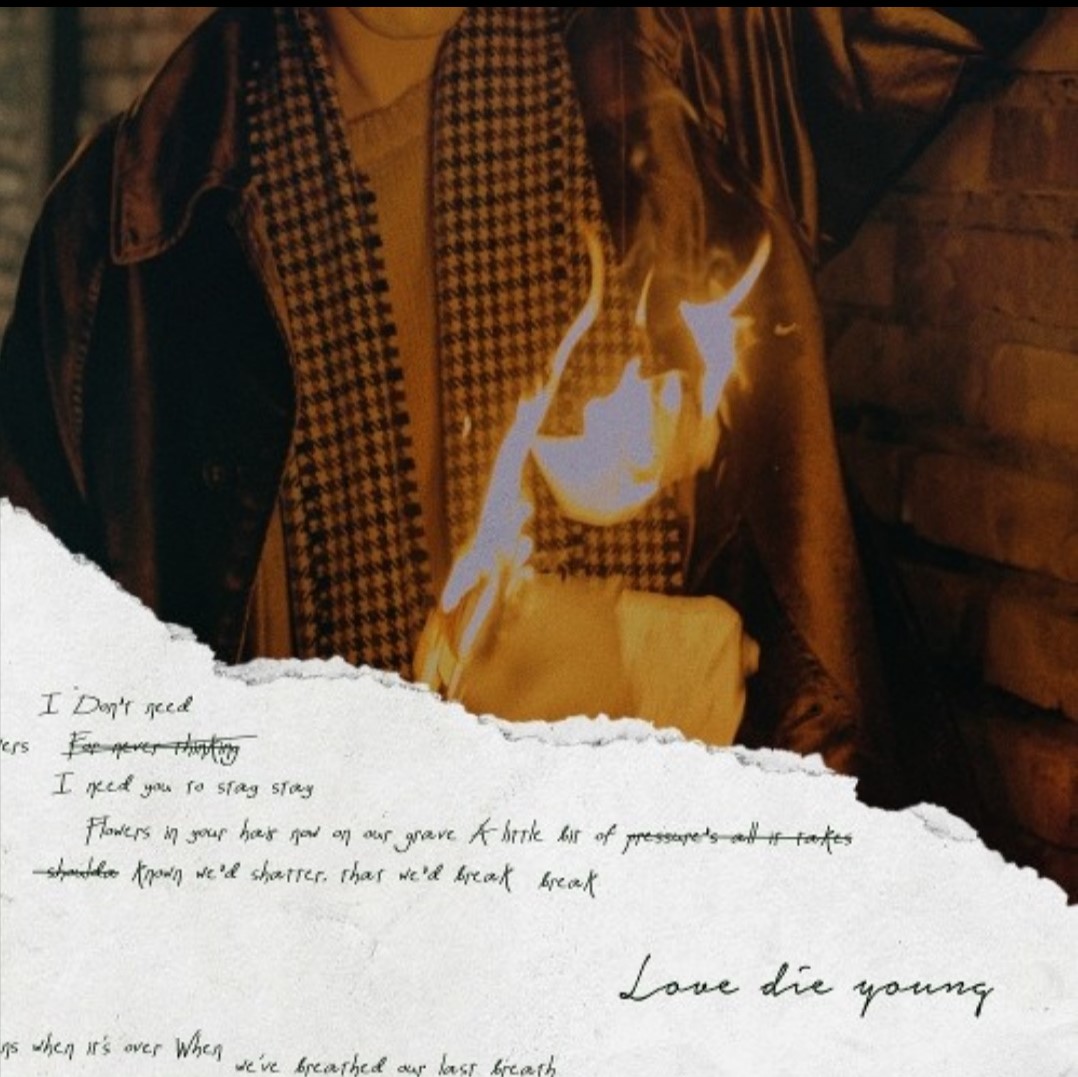 I Don't need
ers For never thinking
I need you to stay stay
Flowers in your hair now on our grave A little bit of pressure's all it takes
shoulda known we'd shatter. that we'd break break
Love die young
ns when it's over When
we've breathed our last breath